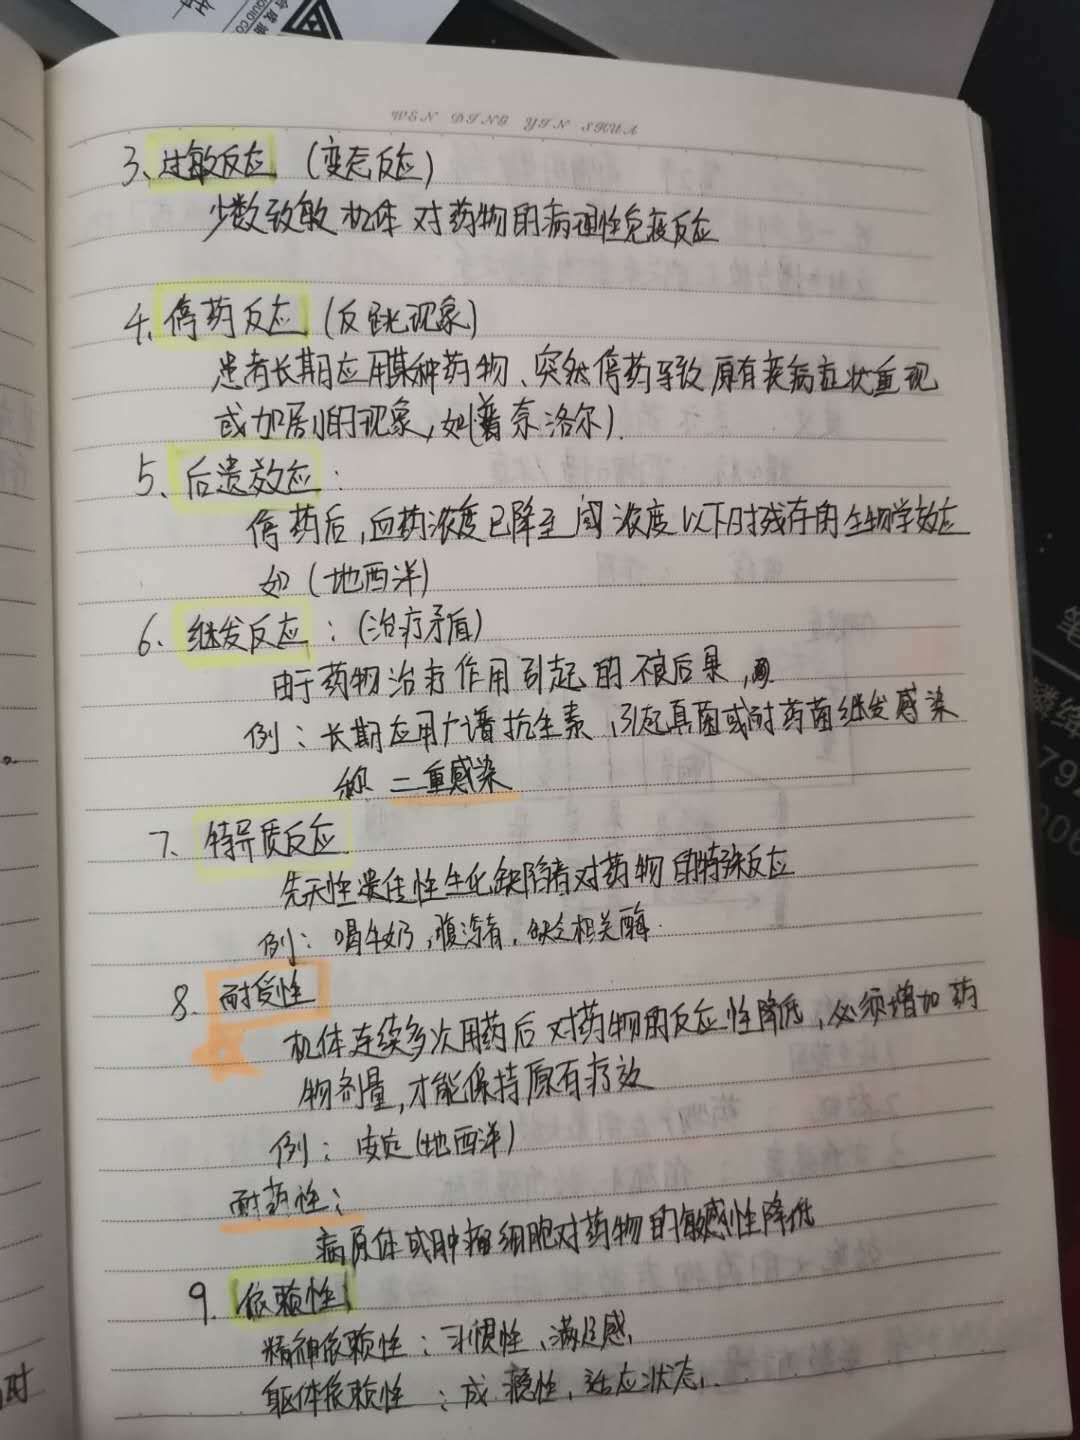 WEN DING YIN SHUA
3、过敏反应 (变态反应)
少数致敏机体对药物的病理性免疫反应
4、停药反应 (反跳现象)
患者长期应用某种药物、突然停药导致原有疾病症状重现
或加剧的现象,如(普奈洛尔).
5、后遗效应:
停药后,血药浓度已降至阈浓度以下时残存的生物学效应
如(地西洋)
6、继发反应:(治疗矛盾)
由于药物治疗作用引起的不良后果,
例:长期应用广谱抗生素,引起真菌或耐药菌继发感染
称 二重感染
7、特异质反应
先天性遗传性生化缺陷者对药物的特殊反应
例:喝牛奶,腹泻者,缺乏相关酶.
8、耐受性
机体连续多次用药后对药物的反应性降低,必须增加药
物剂量,才能保持原有疗效
例:安定(地西洋)
耐药性:
病原体或肿瘤细胞对药物的敏感性降低
9.依赖性
精神依赖性:习惯性、满足感,
躯体依赖性:成瘾性,适应状态.
时
笔
792
006